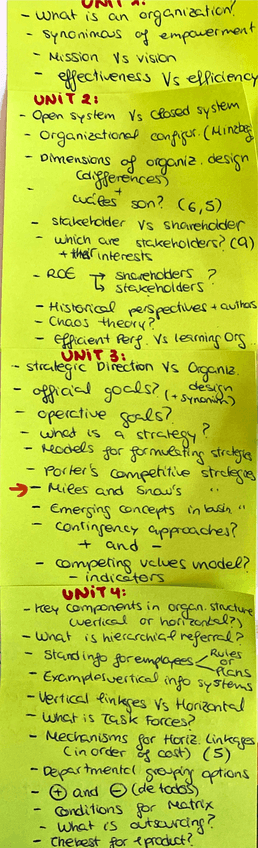 UNIT 1:
- What is an organization?
- Synonimous of empowerment
- Mission Vs vision
- effectiveness Vs efficiency
UNIT 2:
- Open system Vs closed system
- Organizational configur. (Minzberg
- Dimensions of organiz. design
(differences)
+
- cuáles son? (6,5)
- stakeholder Vs shareholder
- which are stakeholders? (9)
+ their interests
- ROE → shareholders ?
↳ stakeholders
- Historical perspectives + authors
- Chaos theory?
- Efficient Perf. Vs learning Org
UNIT 3:
- strategic Direction Vs Organiz.
design
- official goals? (+ synonim)
- operative goals?
- what is a strategy?
- Models for formulating strategies
- Porter's competitive strategies
→ - Miles and Snow's "
- Emerging concepts in busin "
- contingency approaches?
+ and -
- competing values model?
- indicators
UNIT 4:
- Key components in organ. structure
(vertical or horizontal?)
- What is hierarchial referral?
- Stand info for employees < Rules
or
Plans
- Examples vertical info systems
- Vertical linkages Vs Horizontal
- What is Task Forces?
- Mechanisms for Horiz. Linkages
(in order of cost) (5)
- Departmental grouping options
- + and - (de todos)
- Conditions for Matrix
- What is outsourcing?
- best for 1 product?